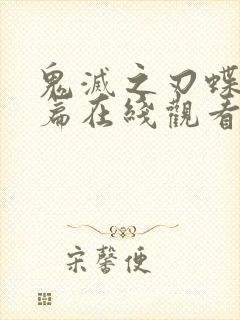 鬼滅之刃蝶
篇在綫觀看
宋馨便